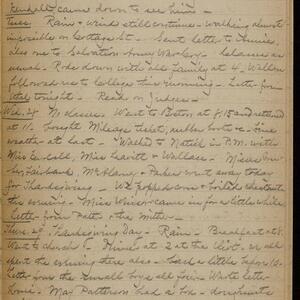 came down to see him -
Tues. Rain & wind still continue - walking almost
impossible on Cottage St - Sent letter to Connie,
also one to Salvation Army Workers - Classes as
usual. Rode down with the family at 4 -
followed us to College this morning - Letter from
tonight - Read on Judges -
Wed. 28 No classes - Went to Boston at 8.15 and returned
at 11 - bought Mileage ticket, rubber boots & - Fine
weather at last - Walked to Natick in P.M. with
Miss Miss Leavitt & Wallace - Misses
Fairbank, McAlarney & Parker went away today
for Thanksgiving - We popped corn & boiled chestnuts
this evening - Miss came in for a little while
Letter from Patty & the Mitten -
Thurs. 29 Thanksgiving Day - Rain - Breakfast at 8
Went to church - Dinner at 2 at the Eliot, or all
spent the evening there also - Had a little before 10 -
Letter from the family all fine - Wrote letter
home - May Patterson had a box - doughnuts